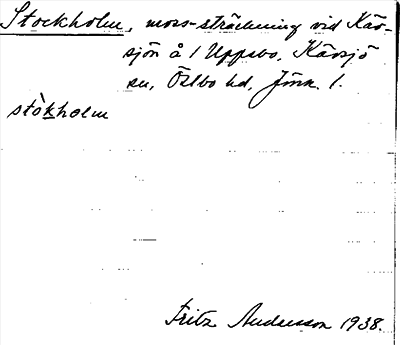 Stockholm, moss-sträckning vid Käv-
sjön å 1 Uppebo, Kävsjö
sn, Östbo hd, Jönk. l.
stòkholm
Fritz Andersson 1938.